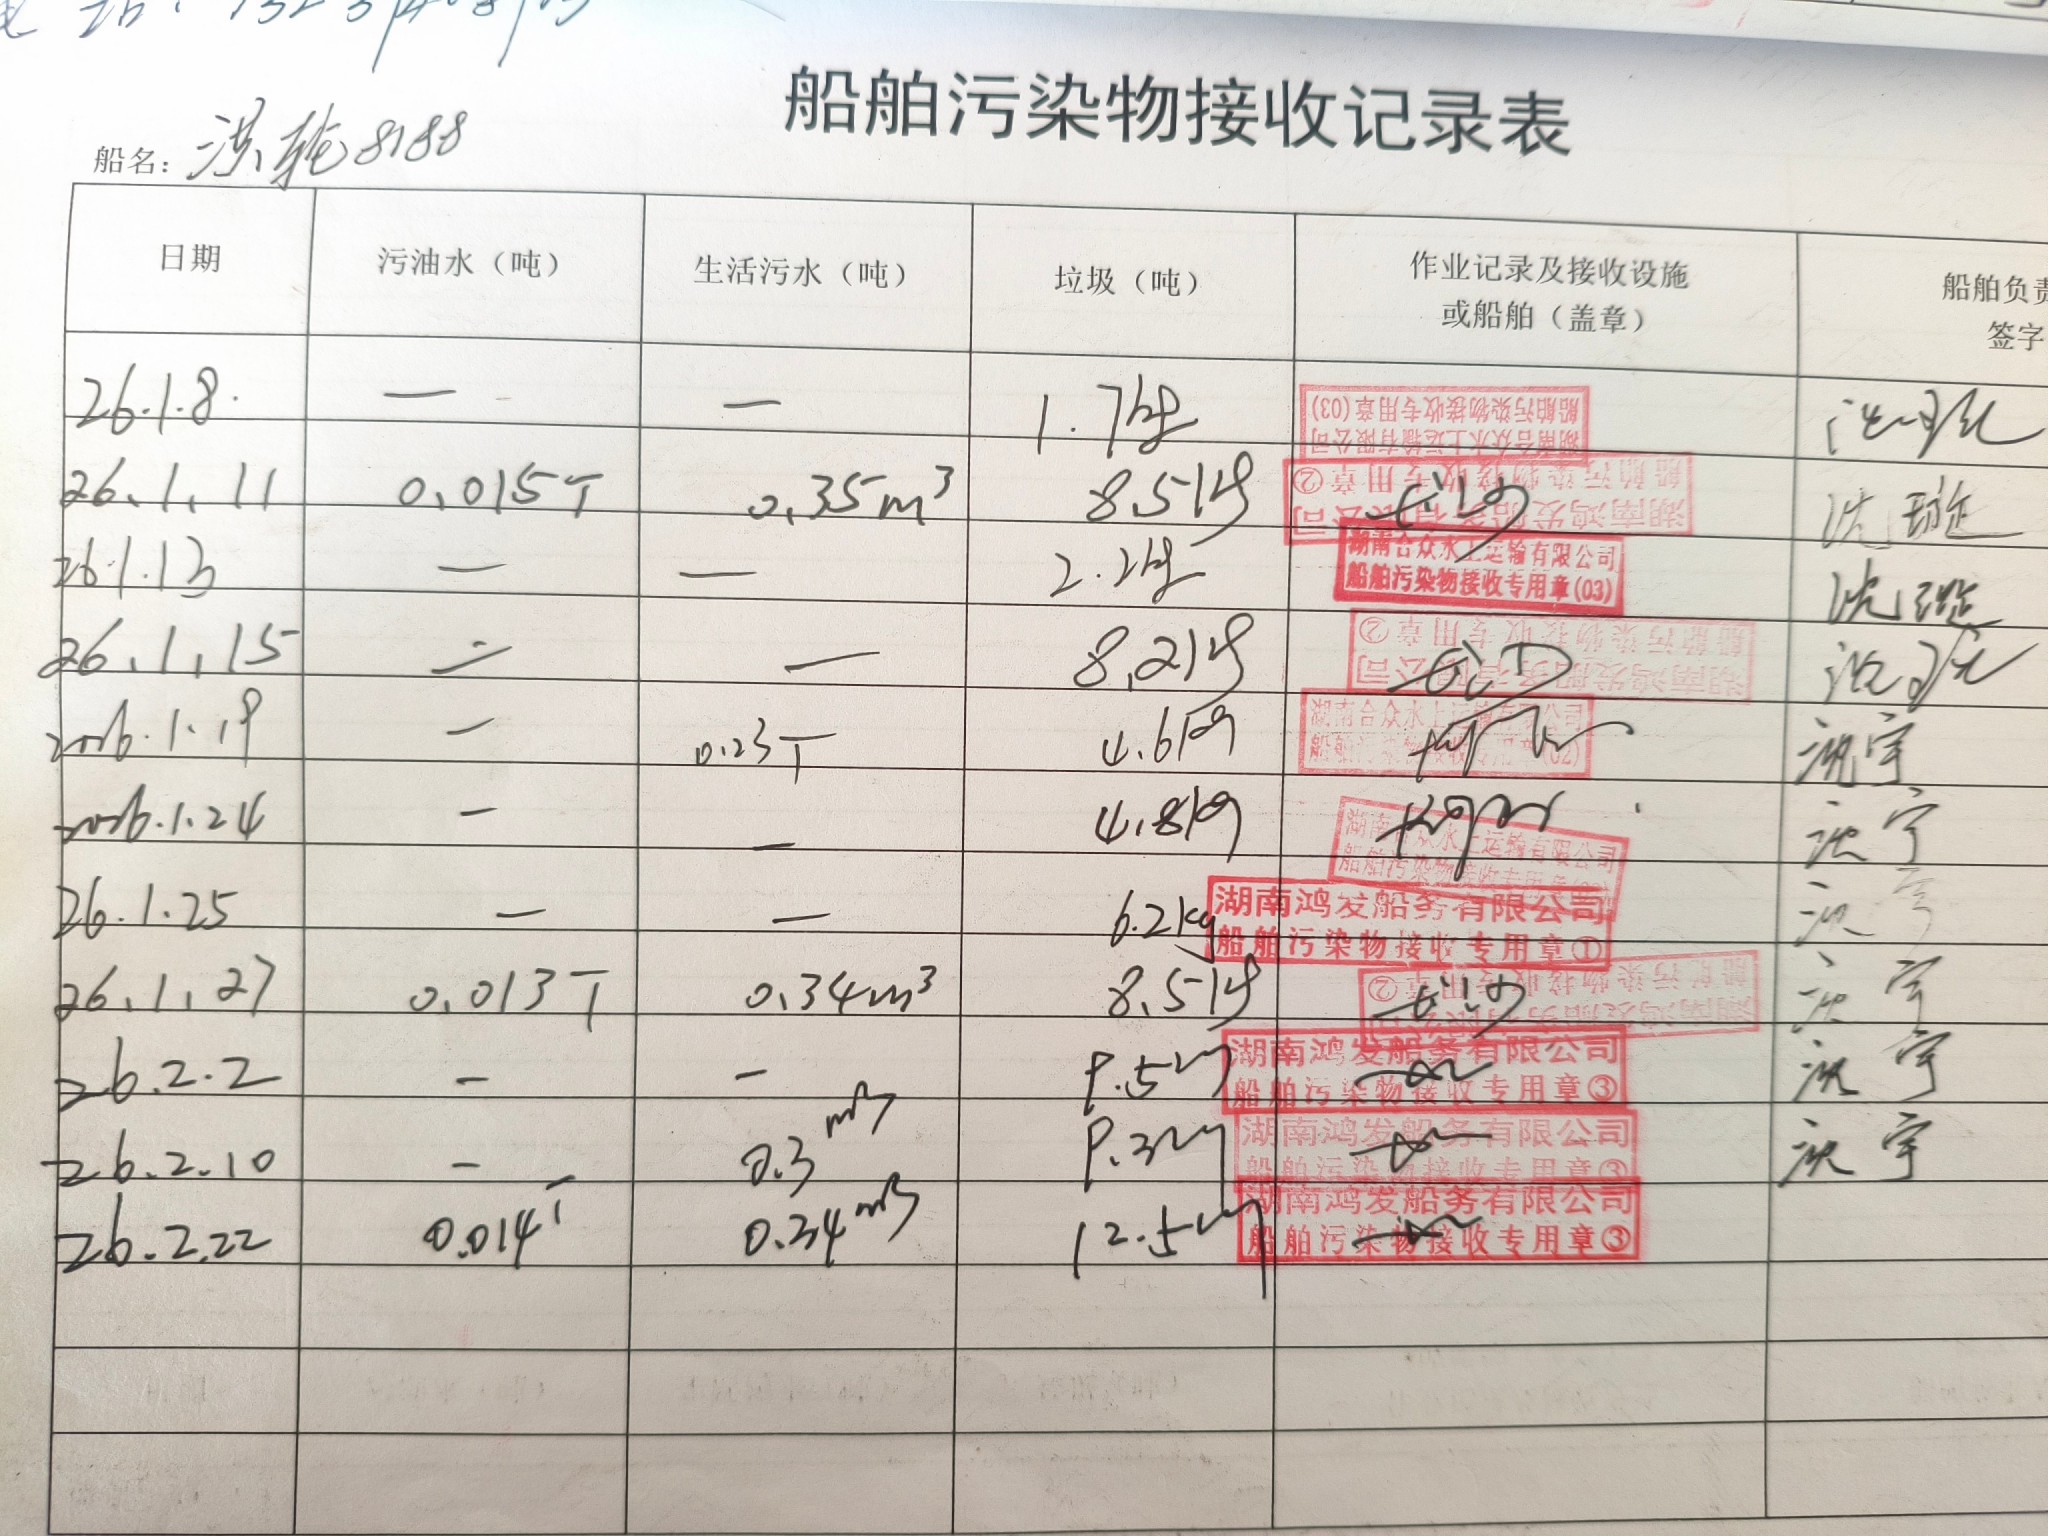 船舶污染物接收记录表
船名: 洪乾8188
日期 污油水（吨） 生活污水（吨） 垃圾（吨） 作业记录及接收设施或船舶（盖章） 船舶负责 签字
26.1.8. — — 1.7kg 湖南合众水上运输有限公司 船舶污染物接收专用章(03)
26.1.11 0.015T 0.35m³ 8.5kg 湖南鸿发船务有限公司 船舶污染物接收专用章② 沈璇
26.1.13 — — 2.2kg 湖南合众水上运输有限公司 船舶污染物接收专用章(03) 沈璇
26.1.15 — — 8.2kg 湖南鸿发船务有限公司 船舶污染物接收专用章②
2026.1.19 — 0.23T 4.6kg 湖南合众水上运输有限公司 (02)
2026.1.24 — — 4.8kg 湖南合众水上运输有限公司 船舶污染物接收专用章
26.1.25 — — 6.2kg 湖南鸿发船务有限公司 船舶污染物接收专用章①
26.1.27 0.013T 0.34m³ 8.5kg 湖南鸿发船务有限公司 船舶污染物接收专用章②
26.2.2 — — 9.5kg 湖南鸿发船务有限公司 船舶污染物接收专用章③
26.2.10 — 0.3m³ 9.3kg 湖南鸿发船务有限公司 船舶污染物接收专用章③
26.2.22 0.014T 0.34m³ 12.5kg 湖南鸿发船务有限公司 船舶污染物接收专用章③